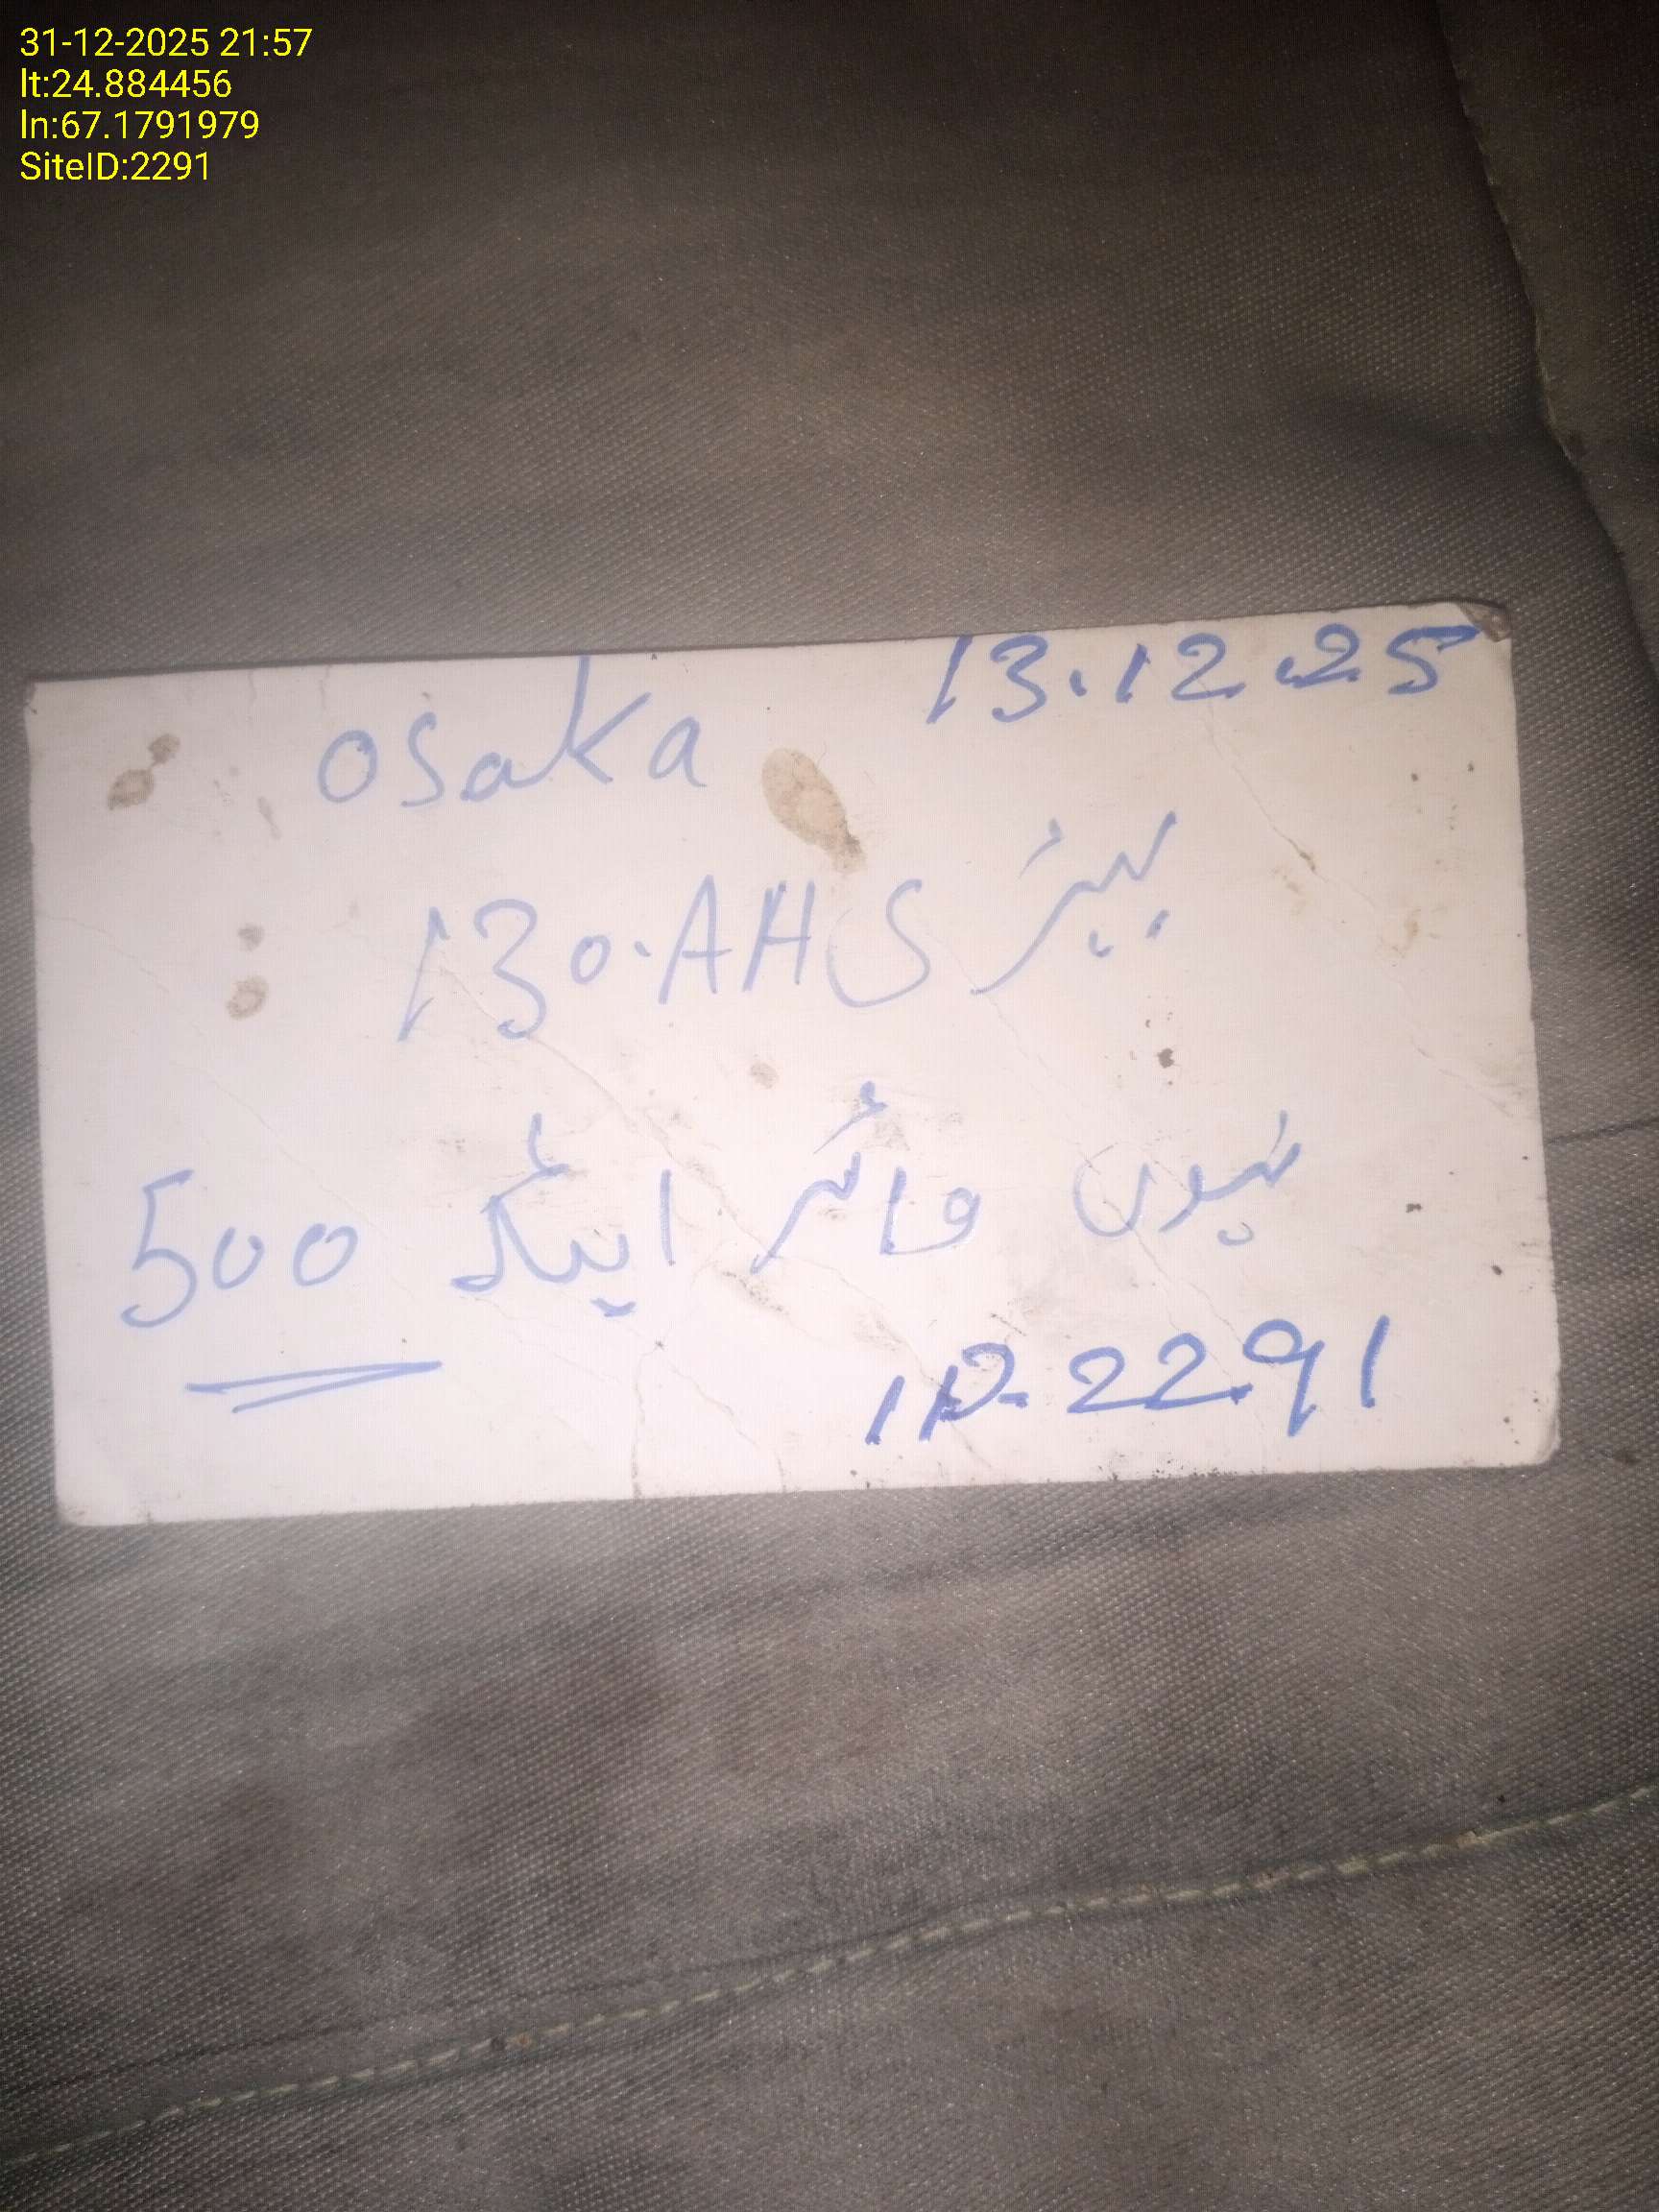 31-12-2025 21:57
lt:24.884456
ln:67.1791979
SiteID:2291
13.12.25
osaka
130.AH
فائر ایکٹ 500
ID.2291